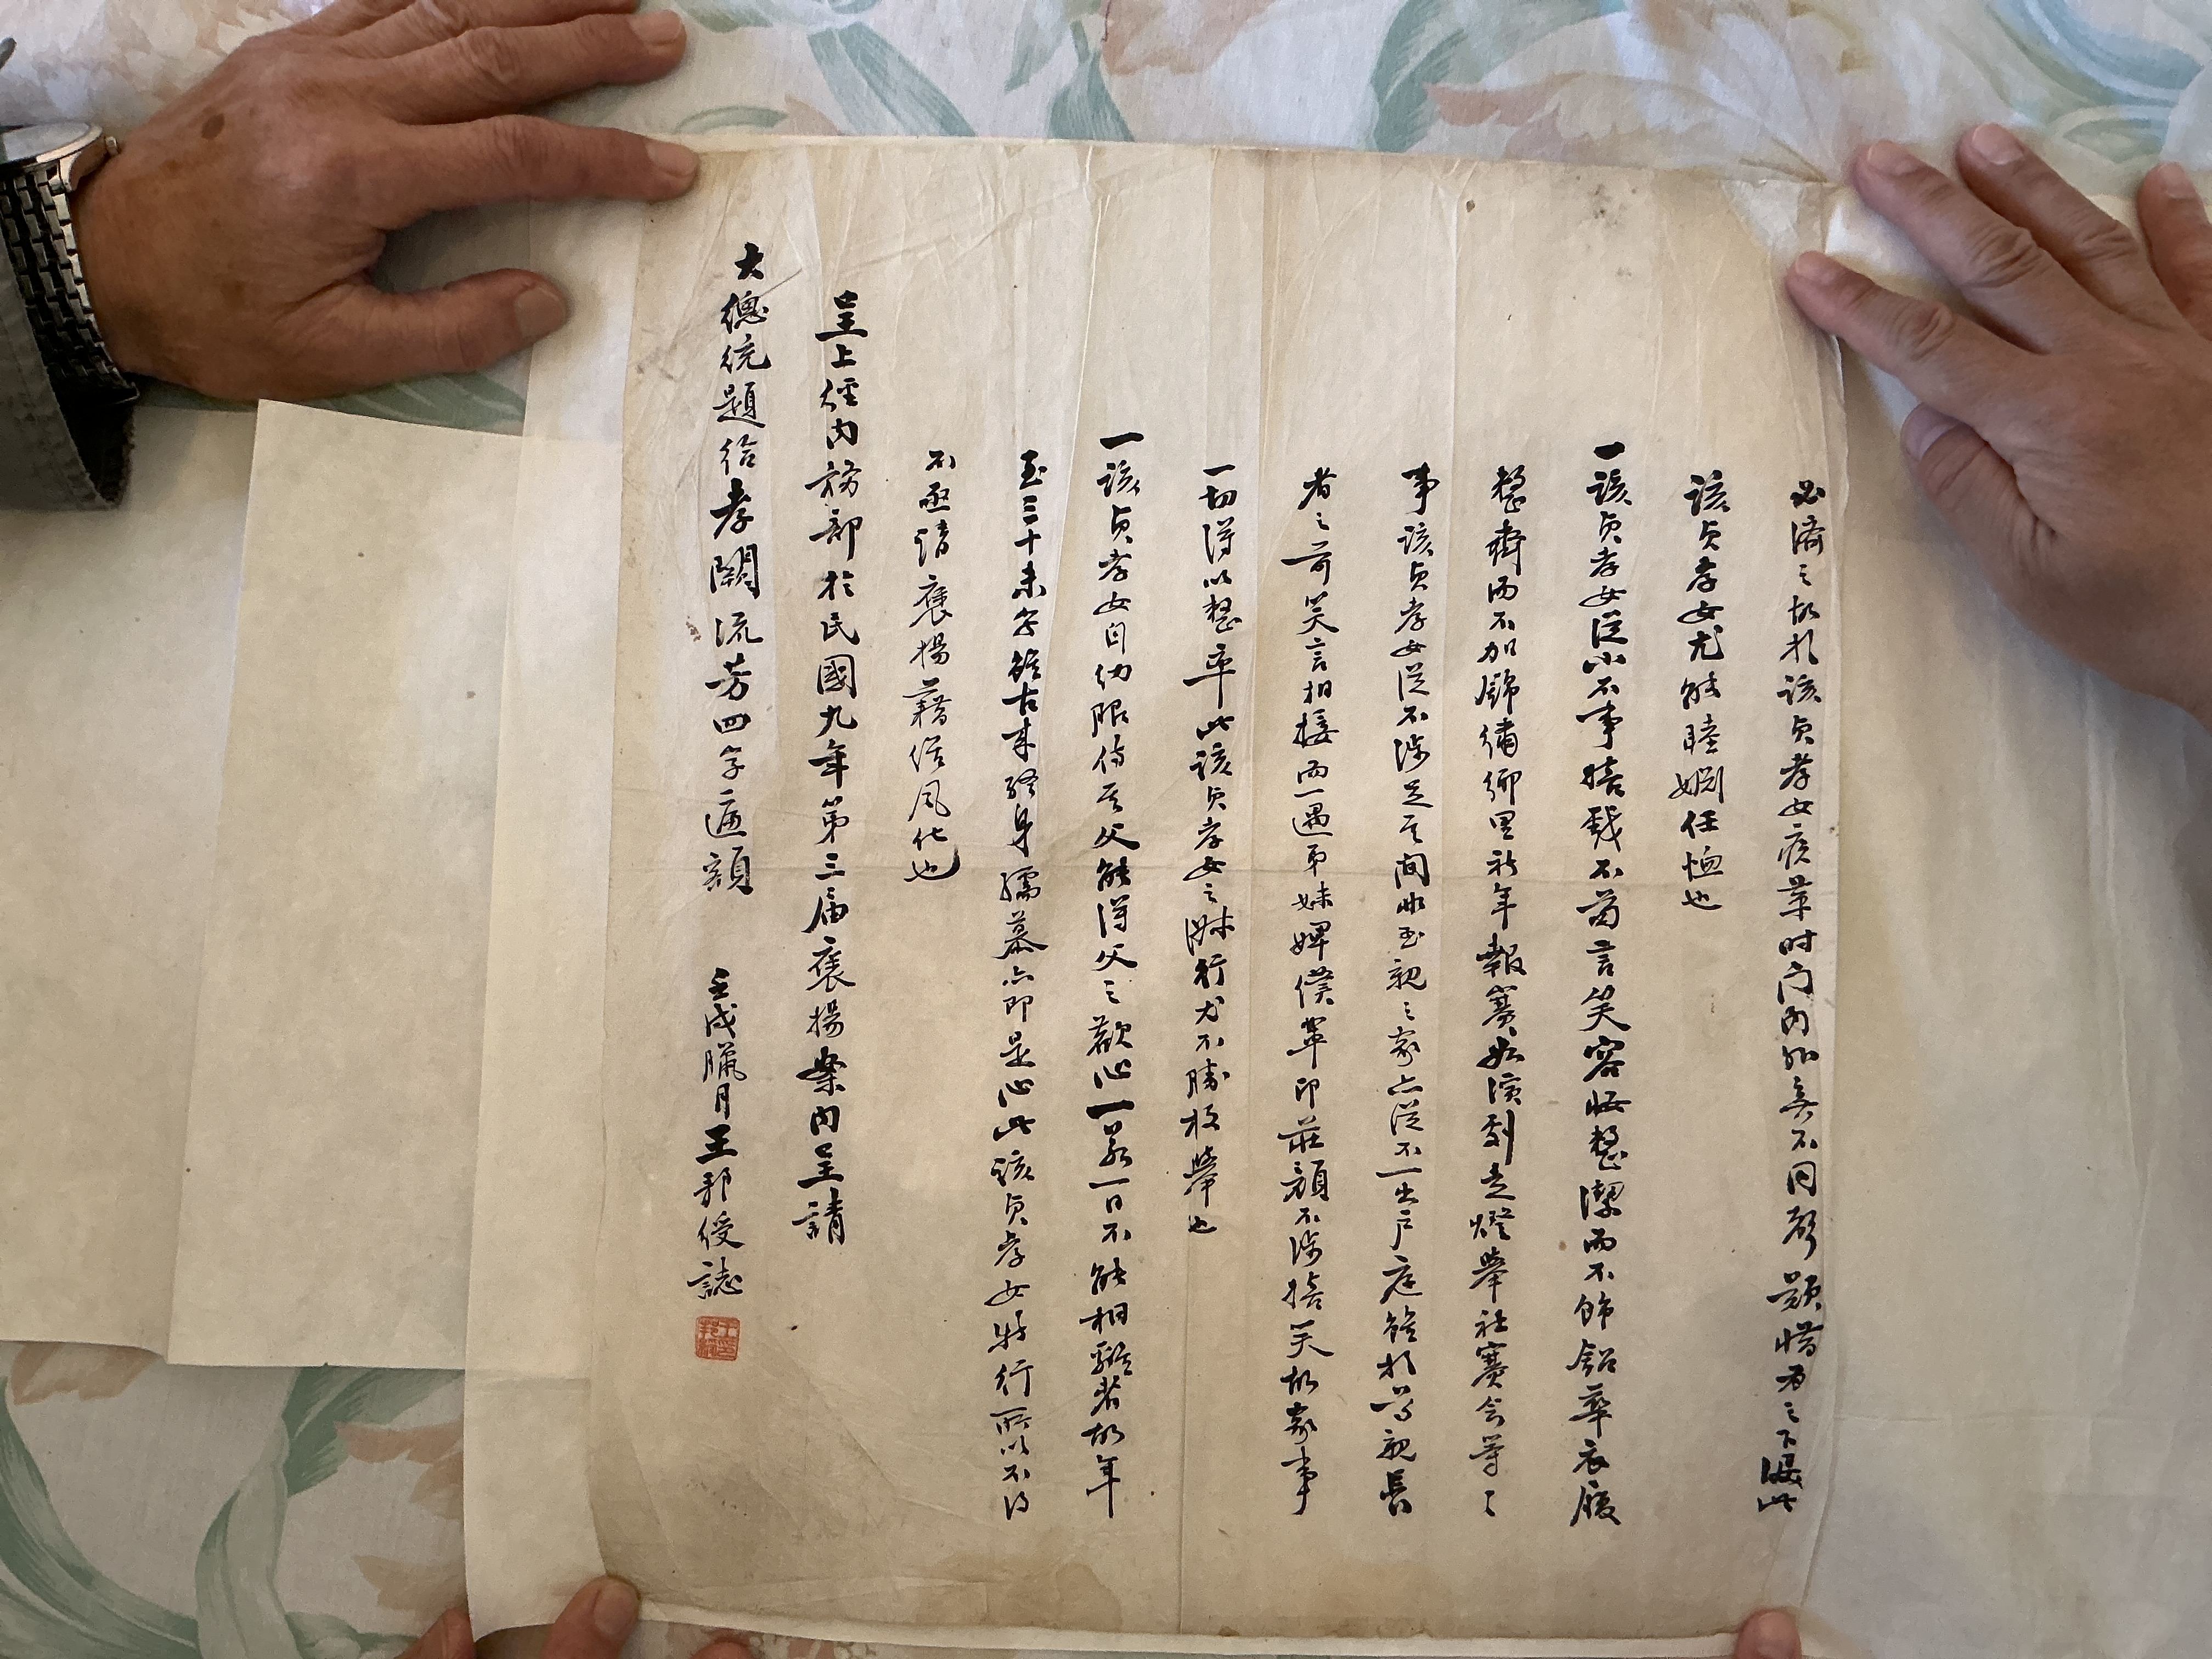 必濟之故於該貞孝女疾革時門內外無不同聲顥惜為之下淚此
該貞孝女尤能睦婣任恤也
一該貞孝女從小不事嬉戲不苟言笑容妝整潔而不飾鉛華衣履
整齊而不加錦繡鄉里新年報賽如演劇走燈舉社賽會等々
事該貞孝女從不涉足其間收至親之家亦從不一出戶庭雖於尊親長
者之前笑言相接而一遇弟妹婢僕輩即莊顏不涉嬉笑故家事
一切得以整率此該貞孝女之淑行尤不勝枚舉也
一該貞孝女自幼服侍其父能得父之歡心一若一日不能相離者故年
至三十未字雖古來終身孺慕亦即是心此該貞孝女特行所以不得
不亟請褒揚藉維風化也
呈上經內務部於民國九年第三屆褒揚案內呈請
大總統題給孝闕流芳四字匾額 壬戌臘月王邦綬誌